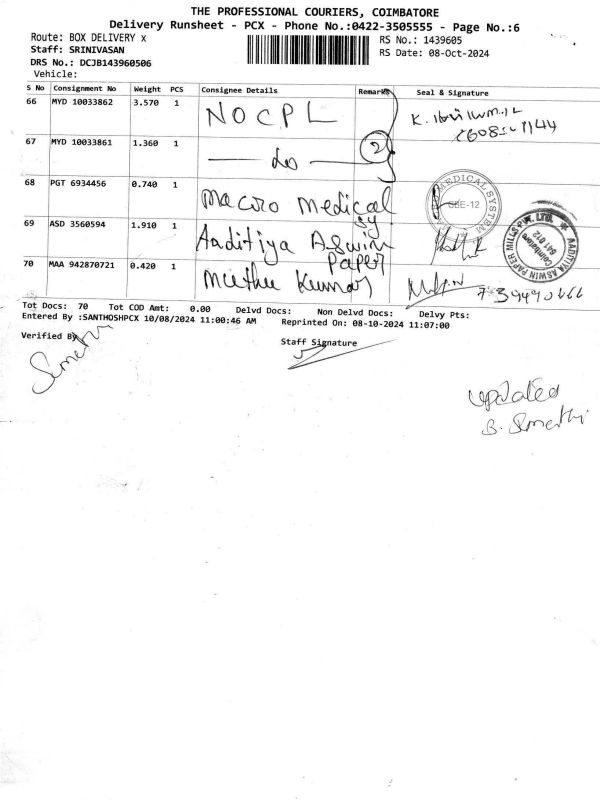 THE PROFESSIONAL COURIERS, COIMBATORE
Delivery Runsheet - PCX - Phone No.:0422-3505555 - Page No.:6
Route: BOX DELIVERY x
RS No.: 1439605
Staff: SRINIVASAN
RS Date: 08-Oct-2024
DRS No.: DCJB143960506
Vehicle:
S No Consignment No Weight PCS Consignee Details Remarks Seal & Signature
66 MYD 10033862 3.570 1 NOCPL
67 MYD 10033861 1.360 1 2
68 PGT 6934456 0.740 1 Macro Medical sy
MEDICAL SYSTEM
CBE-12
69 ASD 3560594 1.910 1 Aaditiya Aswin Paper
AADITIYA ASWIN PAPER MILLS P. LTD.
Coimbatore
641 012
70 MAA 942870721 0.420 1 Muthu Kumar
Tot Docs: 70 Tot COD Amt: 0.00 Delvd Docs: Non Delvd Docs: Delvy Pts:
Entered By :SANTHOSHPCX 10/08/2024 11:00:46 AM Reprinted On: 08-10-2024 11:07:00
Verified By
Staff Signature
Sumathi
updated
B. Sumathi